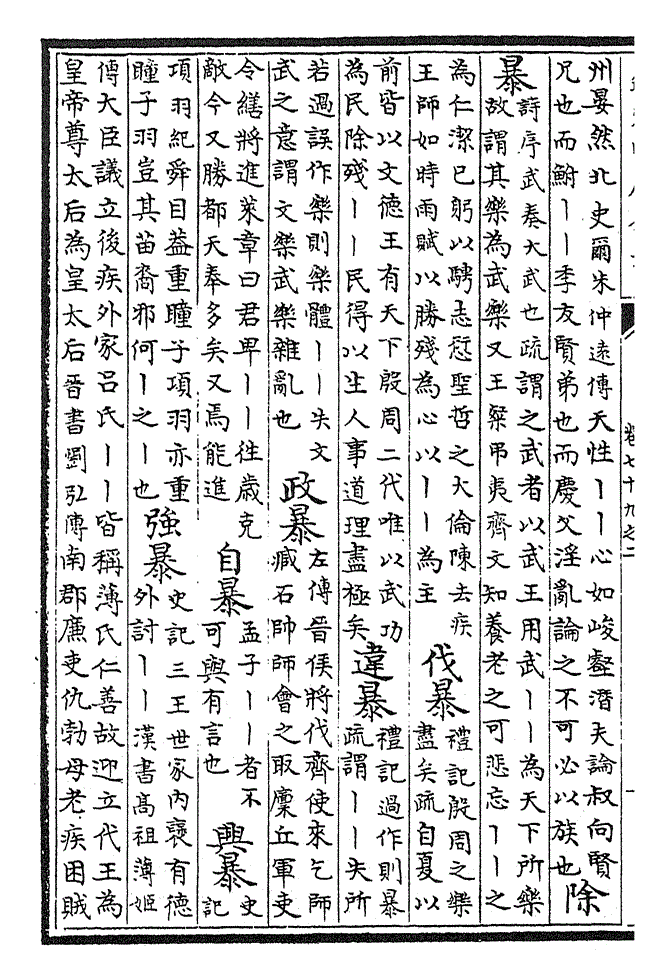 卷七十九之二
一
州晏然北史爾朱仲遠傳天性丨丨心如峻壑潛夫論叔向賢
兄也而鮒丨丨季友賢弟也而慶父淫亂論之不可必以族也
除
暴
詩序武奏大武也疏謂之武者以武王用武丨丨為天下所樂
故謂其樂為武樂又王粲弔夷齊文知養老之可悲忘丨丨之
為仁潔已躬以騁志愆聖哲之大倫陳去疾
王師如時雨賦以勝殘為心以丨丨為主
伐暴
禮記殷周之樂
盡矣疏自夏以
前皆以文德王有天下殷周二代唯以武功
為民除殘丨丨民得以生人事道理盡極矣
違暴
禮記過作則暴
疏謂丨丨失所
若過誤作樂則樂體丨丨失文
武之意謂文樂武樂雜亂也
政暴
左傳晉侯將伐齊使來乞師
臧石帥師會之取廩丘軍吏
令繕將進萊章曰君卑丨丨往歲克
敵今又勝都天奉多矣又焉能進
自暴
孟子丨丨者不
可與有言也
興暴
史
記
項羽紀舜目蓋重瞳子項羽亦重
瞳子羽豈其苗裔邪何丨之丨也
強暴
史記三王世家內褒有德
外討丨丨漢書高祖薄姬
傳大臣議立後疾外家呂氏丨丨皆稱薄氏仁善故迎立代王為
皇帝尊太后為皇太后晉書劉弘傳南郡廉吏仇勃母老疾困賊